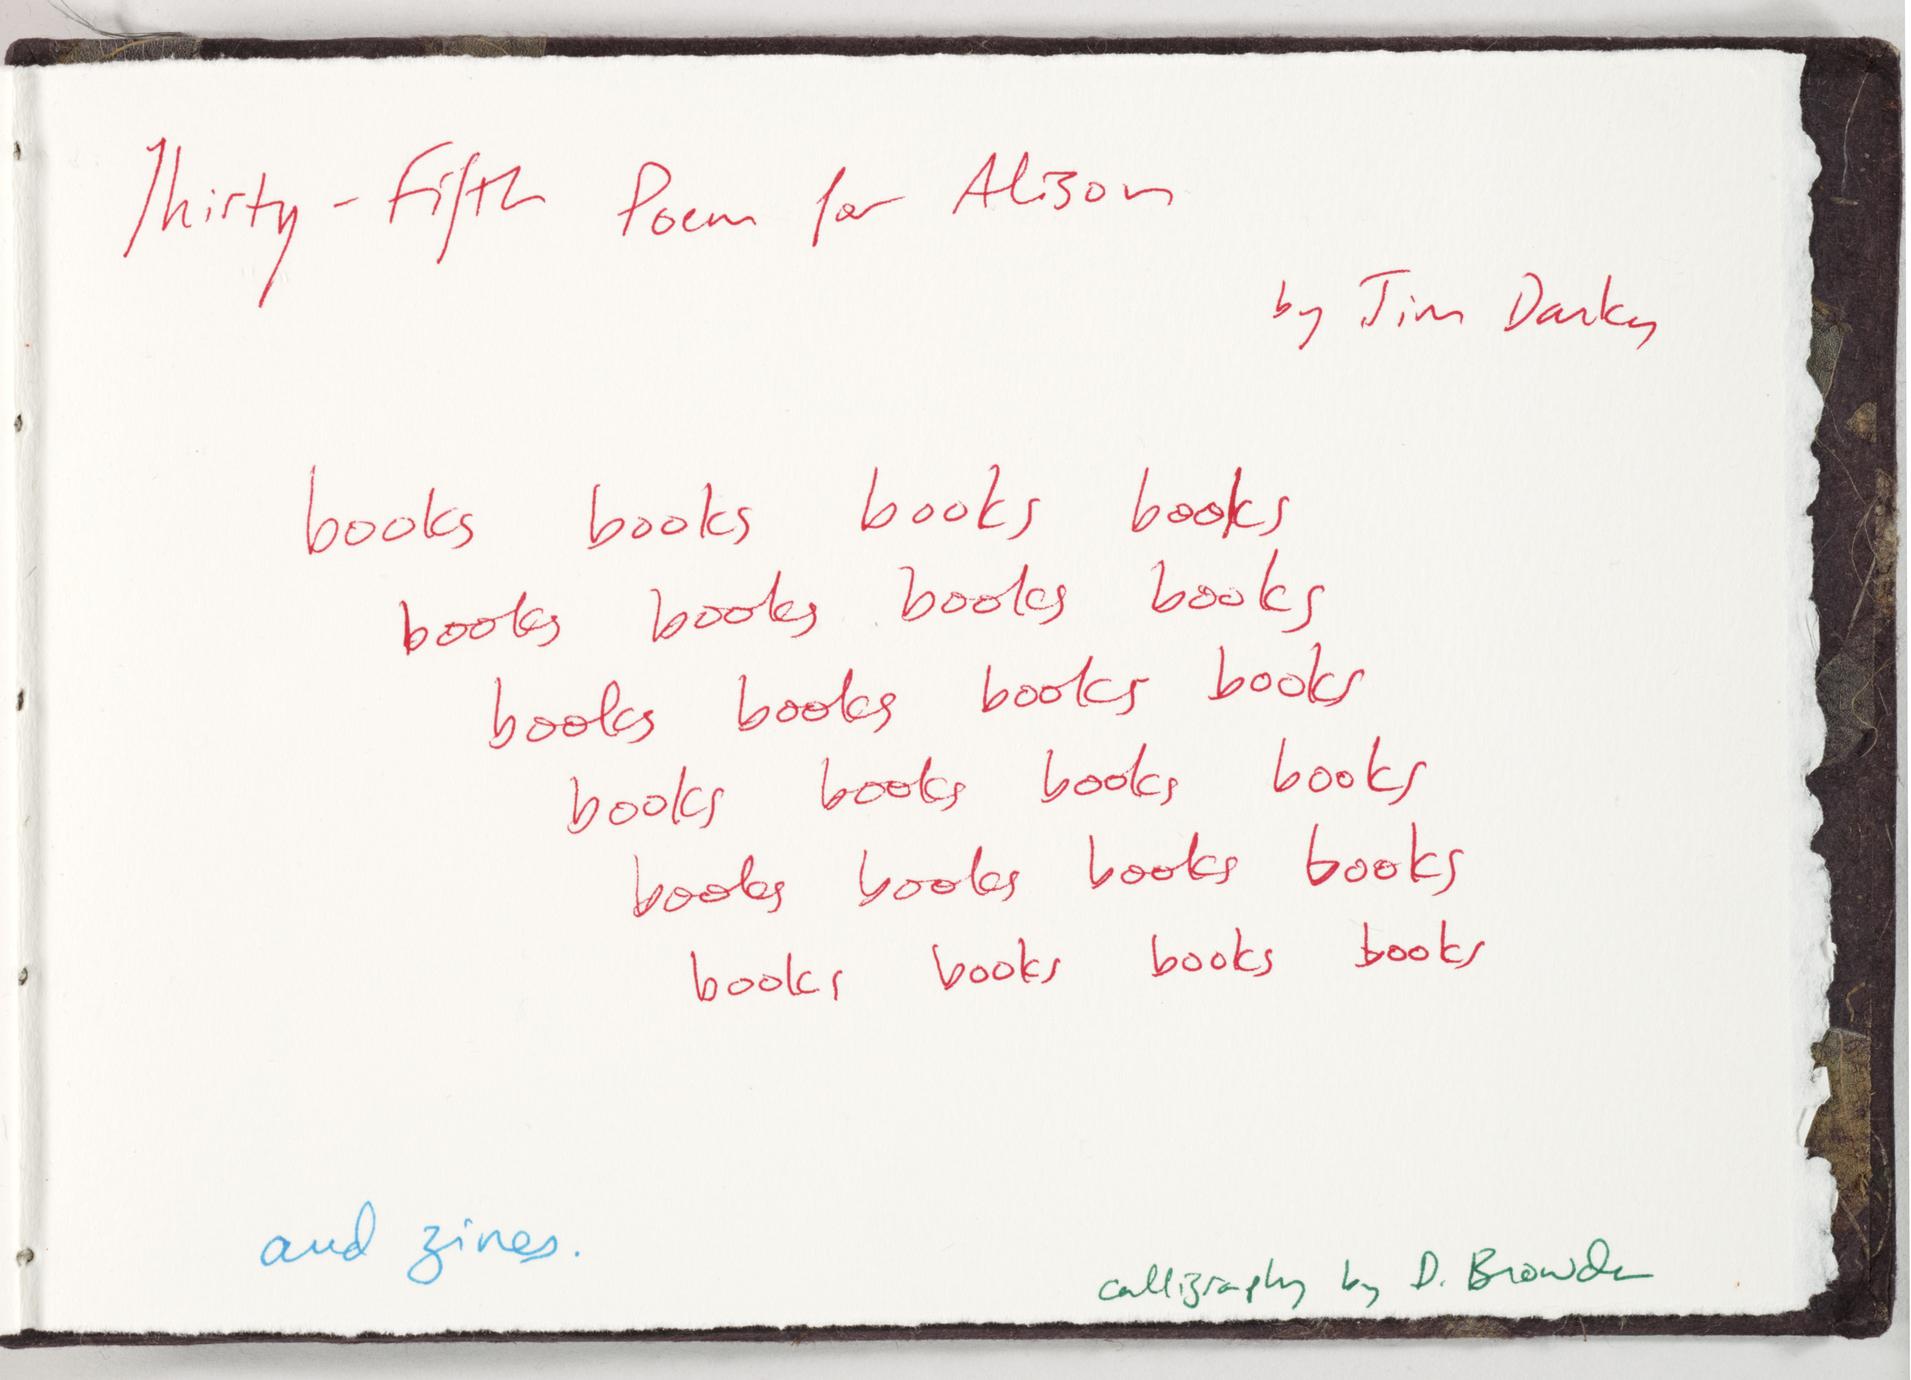 Thirty-Fifth Poem for Alison
by Jim Darky
books books books books
books books books books
books books books books
books books books books
books books books books
books books books books
and zines.
calligraphy by D. Browde